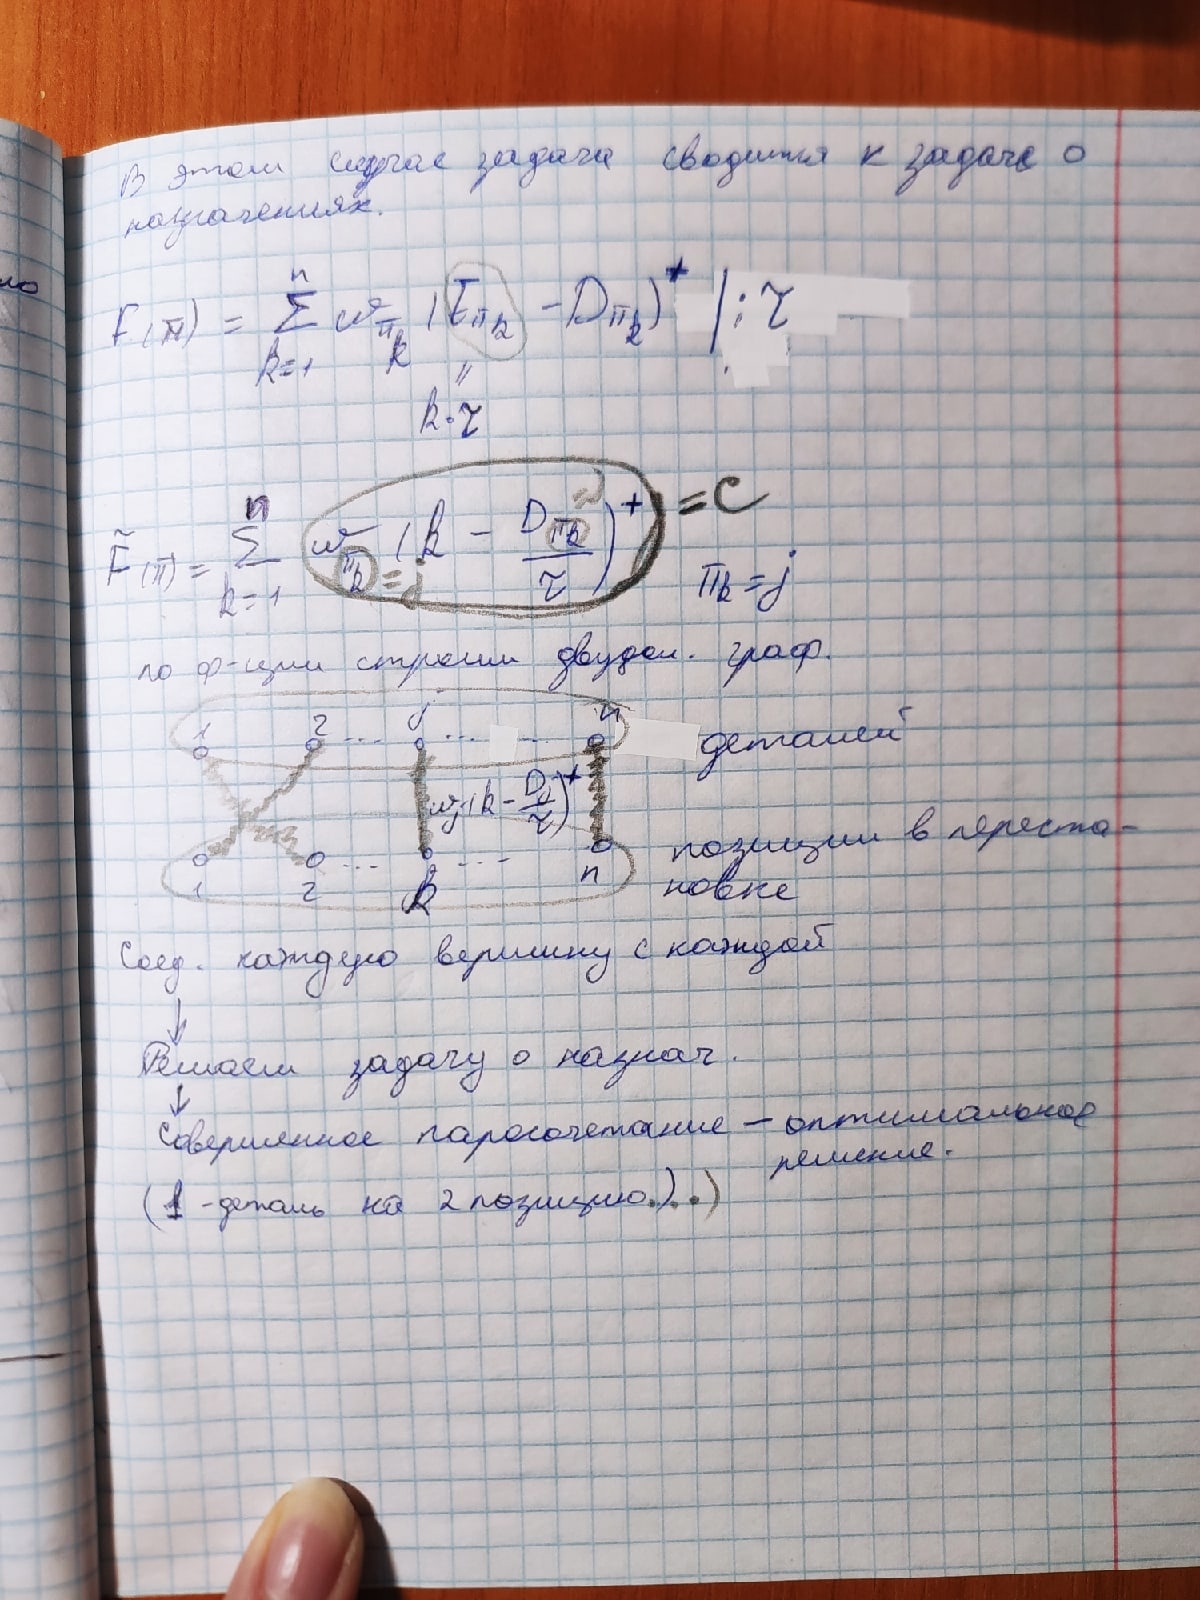 В этом случае задача сводится к задаче о
назначениях.
F(π) = Σ_{k=1}^{n} w_{π_k} (t_{π_k} - D_{π_k})^+ | : τ
"
k·τ
F̃(π) = Σ_{k=1}^{n} w_{π_k = j} (k - D_{π_k = j}/τ)^+ = C
π_k = j
по ф-ции строим двудол. граф.
1 2 ... j ... ... n деталей
w_j (k - D_j/τ)^+
позиции в переста-
1 2 ... k ... n новке
Соед. каждую вершину с каждой
↓
Решаем задачу о назнач.
↓
Совершенное паросочетание - оптимальное
решение.
(1 - деталь на 2 позицию.)..)